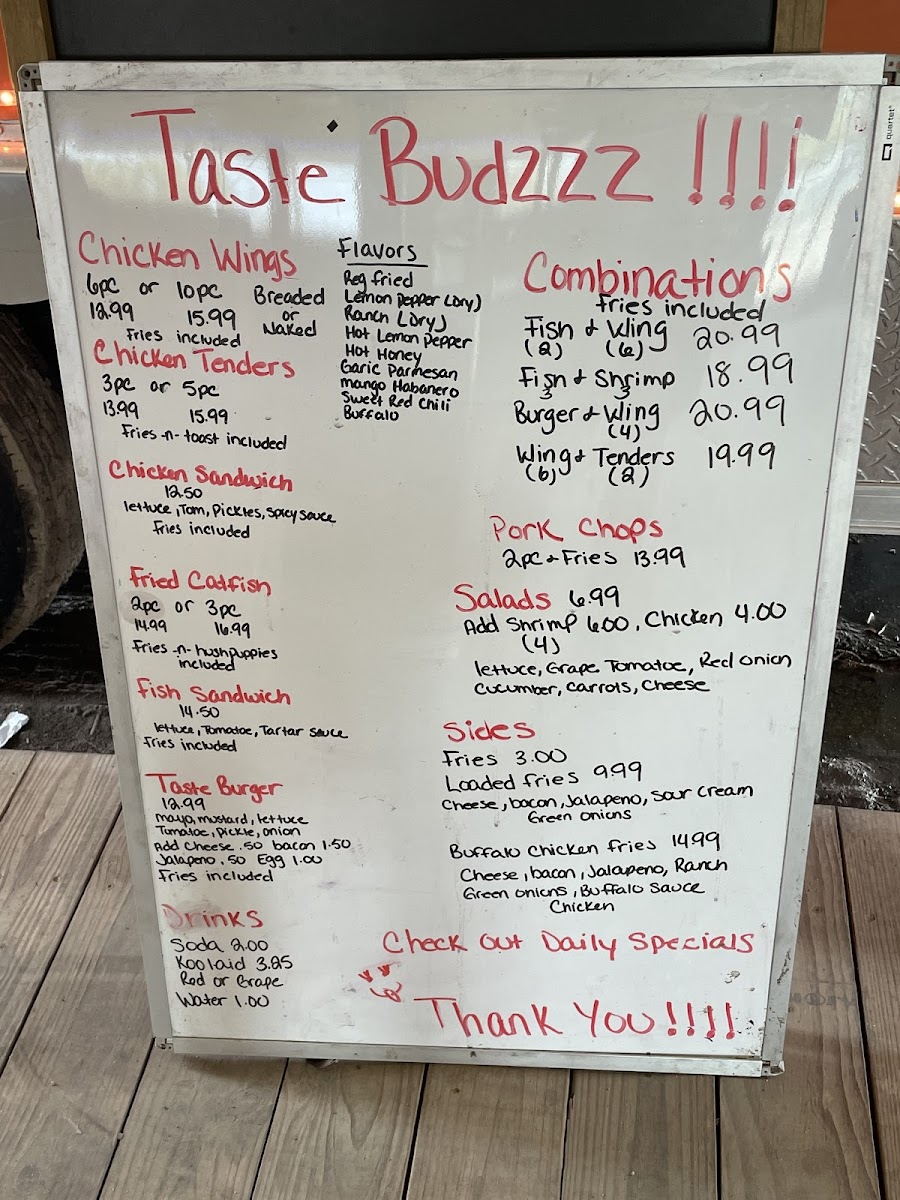 Taste Budzzz !!!!
Chicken Wings
6pc or 10pc Breaded
12.99 15.99 or
Naked
Fries included
Chicken Tenders
3pc or 5pc
13.99 15.99
Fries -n- toast included
Chicken Sandwich
12.50
lettuce, Tom, Pickles, Spicy sauce
Fries included
Fried Catfish
2pc or 3pc
14.99 16.99
Fries -n- hushpuppies
included
Fish Sandwich
14.50
lettuce, Tomatoe, Tartar sauce
Fries included
Taste Burger
12.99
mayo, mustard, lettuce
Tomatoe, pickle, onion
Add cheese .50 bacon 1.50
Jalapeno .50 Egg 1.00
Fries included
Drinks
Soda 2.00
Koolaid 3.25
Red or Grape
Water 1.00
Flavors
Reg fried
Lemon pepper (Dry)
Ranch (Dry)
Hot Lemon Pepper
Hot Honey
Garic Parmesan
mango Habanero
Sweet Red Chili
Buffalo
Combinations
fries included
Fish & Wing 20.99
(2) (6)
Fish & Shrimp 18.99
3 3
Burger & Wing 20.99
(4)
Wing & Tenders 19.99
(6) (2)
Pork Chops
2pc & Fries 13.99
Salads 6.99
Add Shrimp 6.00, Chicken 4.00
(4)
lettuce, Grape Tomatoe, Red onion
Cucumber, carrots, Cheese
Sides
Fries 3.00
Loaded fries 9.99
Cheese, bacon, Jalapeno, Sour cream
Green onions
Buffalo Chicken fries 14.99
Cheese, bacon, Jalapeno, Ranch
Green onions, Buffalo Sauce
Chicken
Check out Daily Specials
Thank You !!!!
quartet